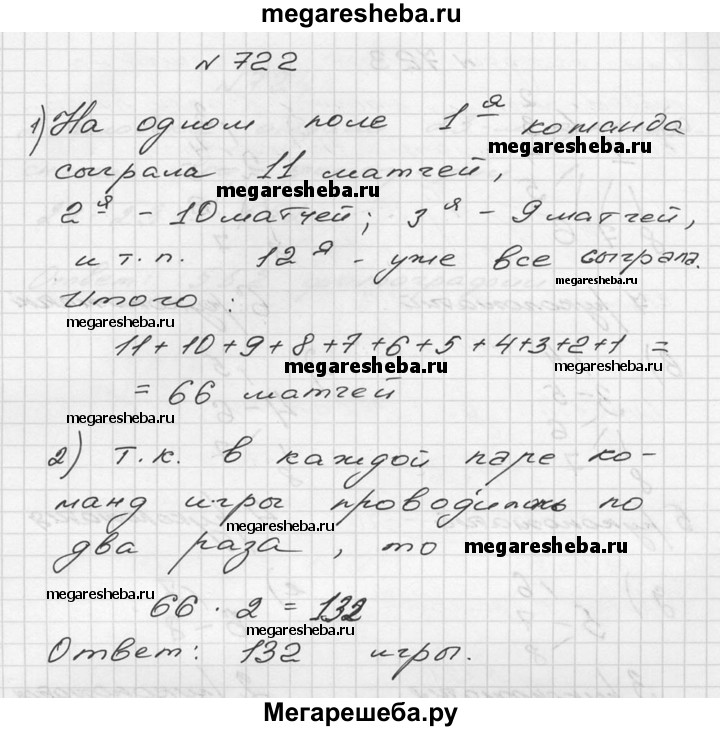 megaresheba.ru
№ 722
1) На одном поле 1я команда
megaresheba.ru
сыграла 11 матчей,
megaresheba.ru
2я - 10 матчей; 3я - 9 матчей,
и т.п. 12я - уже все сыграла.
megaresheba.ru
Итого :
megaresheba.ru
11+10+9+8+7+6+5+4+3+2+1 =
megaresheba.ru
megaresheba.ru
= 66 матчей
megaresheba.ru
2) т.к. в каждой паре ко-
манд игры проводились по
megaresheba.ru
два раза, то
megaresheba.ru
megaresheba.ru
66 · 2 = 132
megaresheba.ru
Ответ: 132 игры.
Мегарешеба.ру